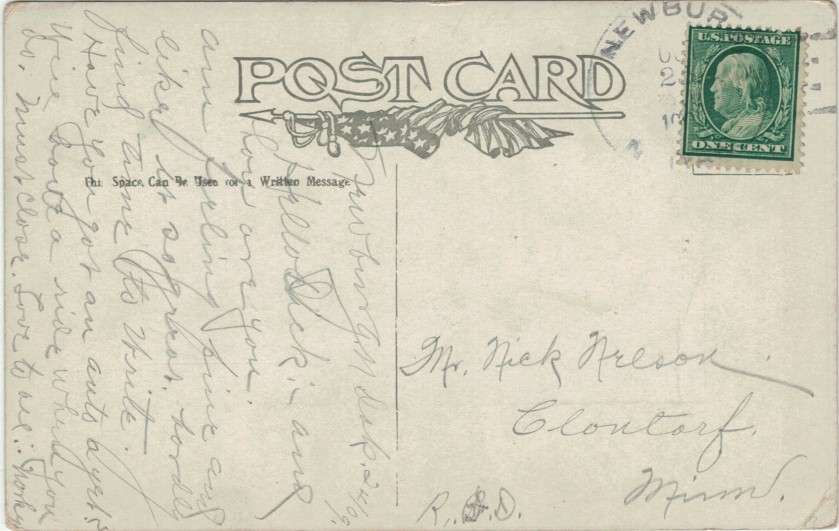 POST CARD
This Space Can Be Used for a Written Message
NEWBUR
U.S. POSTAGE
ONE CENT
Newburg N Dak.
Hello Nick:- and
how are you.
am feeling fine and
like it so great. hardly
find time to write.
Have you got an auto yet
Give Love a ride when you
do. Must close. Love to all:
Mr. Nick Nelson
Clontarf.
Minn.
R. D.